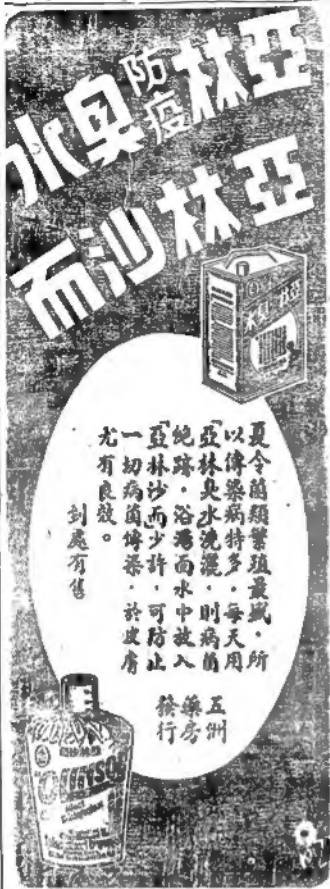 亞林防疫臭水
亞林沙而
亞林臭水
夏令菌類繁殖最盛，所
以傳染病特多，每天用
「亞林臭水」澆灑，則病菌
絕跡，浴湯面水中放入
「亞林沙而」少許，可防止
一切病菌傳染，於皮膚
尤有良效。
到處有售
五洲
藥房
發行